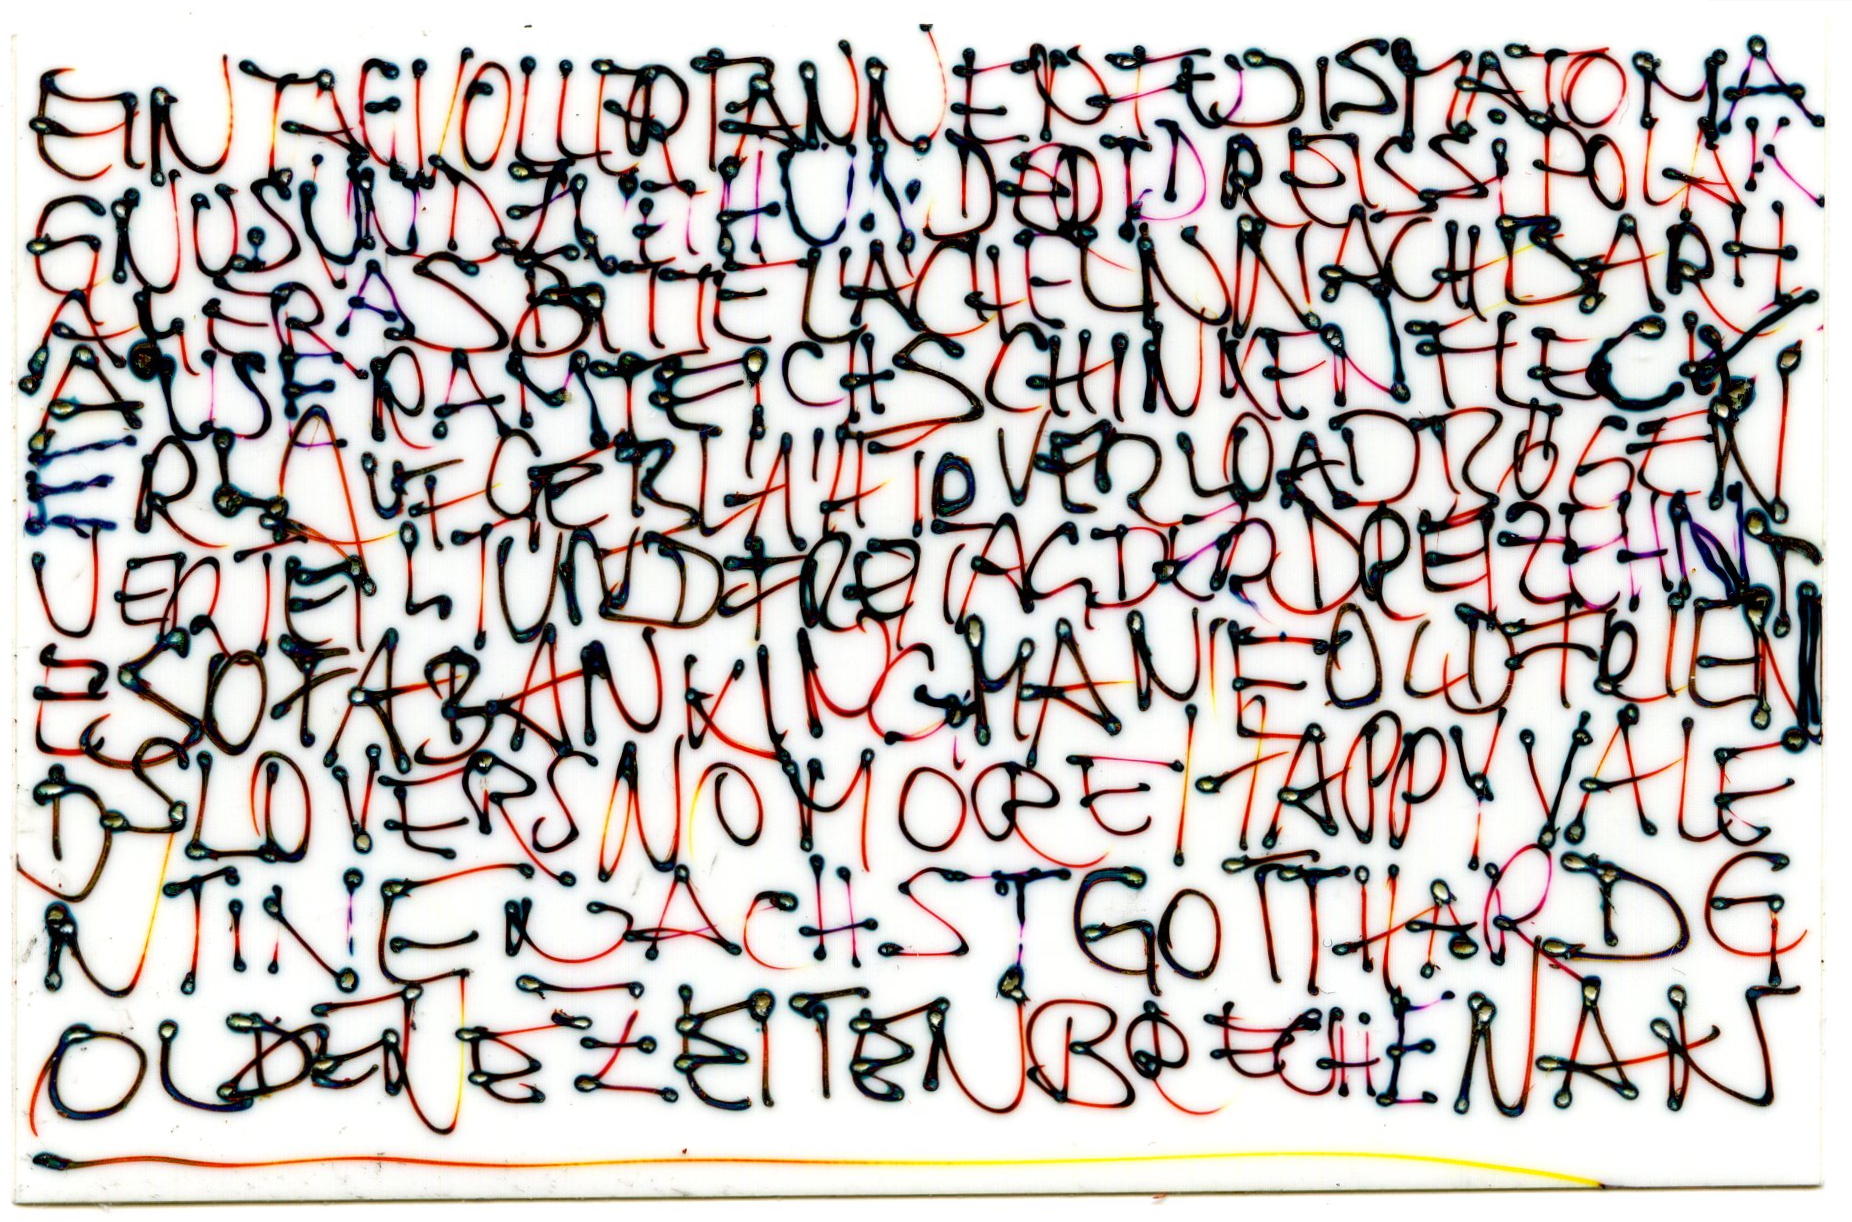 EIN TAG VOLLER TANN ERFEDISMATOMA
GNUSUNDZEHUNDERTDREISSIPOLAR
ALTERASBITTELÄCHELNNACHBARH
ÄUSERAMTEICHSCHINKENFLECK
ERLAUFGEBLÄHTDVERLOADBÖGEN
UERJETLTUNDFREITAGDERDREIZEHNT
ESOFABANKINGMANIEOLUTRIEN
DSLOVERSNOMOREHAPPYVALE
NTINENÄCHSTGOTTHARDG
OLDENEZEITENBRECHENAN